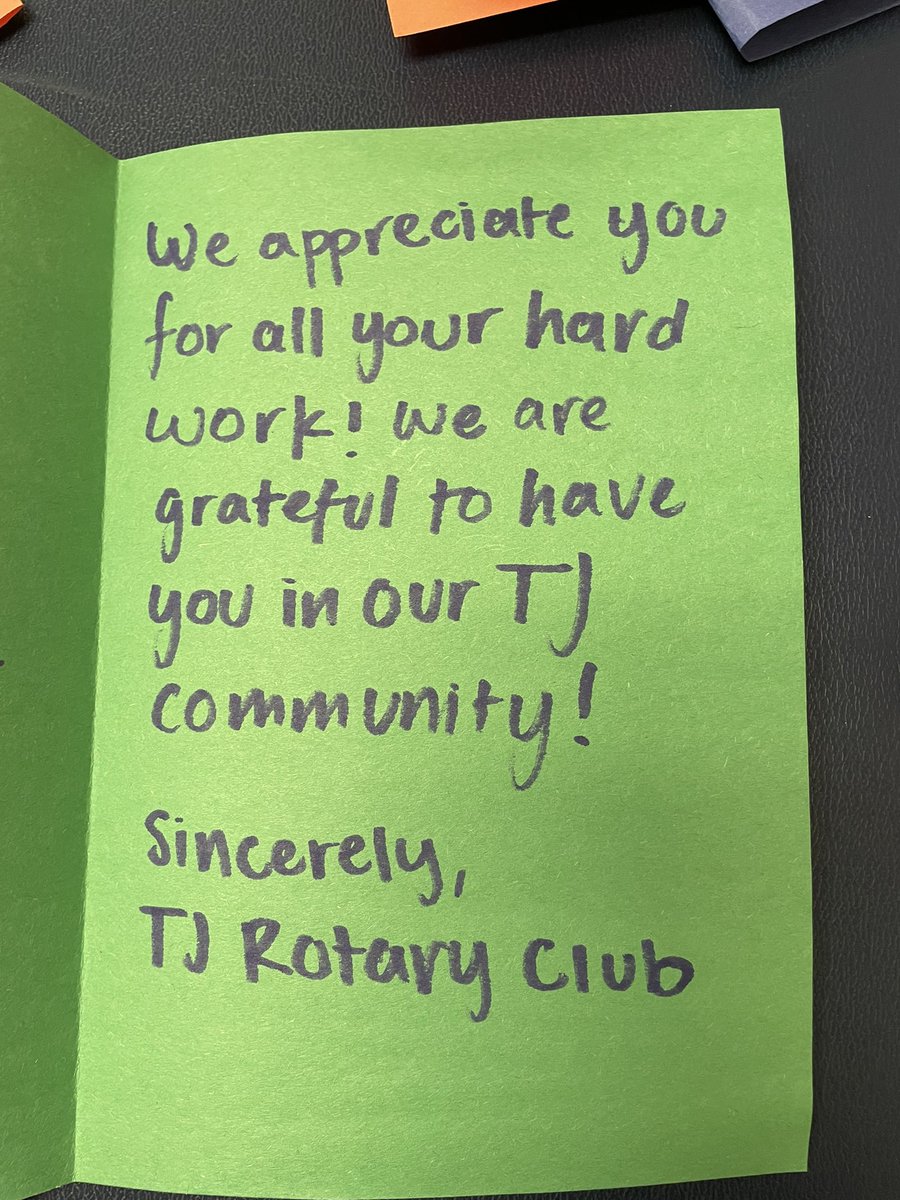 We appreciate you
for all your hard
work! We are
grateful to have
you in our TJ
community!
Sincerely,
TJ Rotary Club